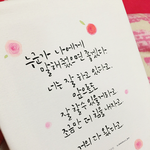 누군가 나에게
말해줬으면 좋겠다.
너는 잘 하고 있다고.
앞으로도
잘 할 수 있을거라고
조금만 더 힘을 내라고
거의 다 왔다고.